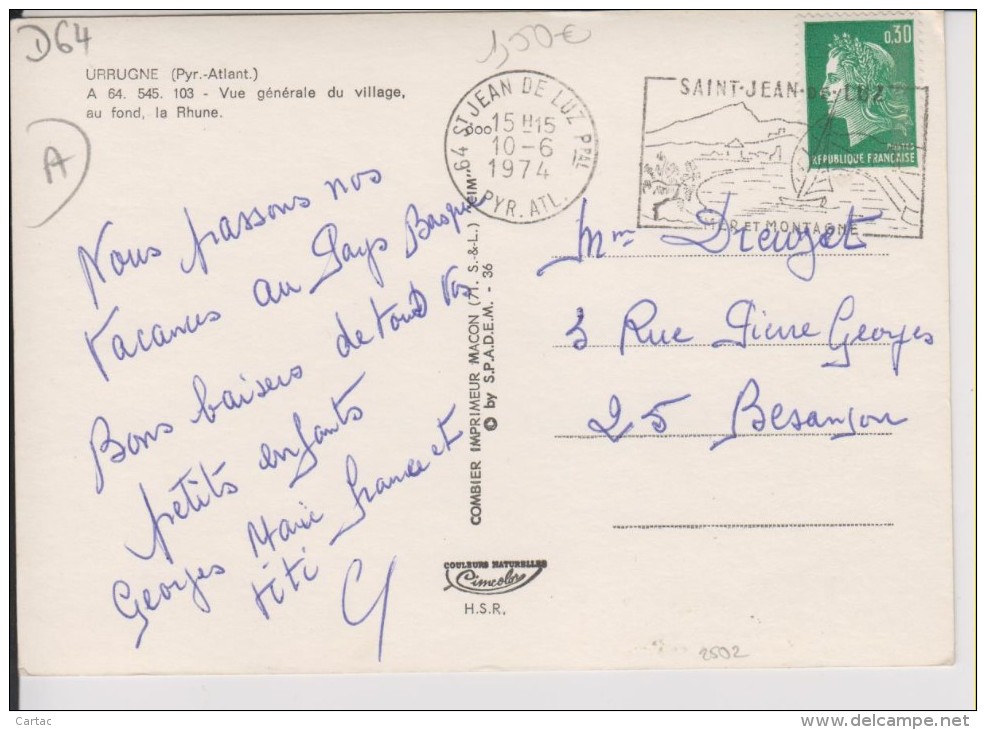 D64
1,50€
URRUGNE (Pyr.-Atlant.)
A 64. 545. 103 - Vue générale du village,
au fond, la Rhune.
A
64 ST JEAN DE LUZ PPAL
15 H15
10-6
1974
PYR. ATL.
SAINT-JEAN-DE-LUZ
MER ET MONTAGNE
0,30
POSTES
REPUBLIQUE FRANÇAISE
Nous passons nos
vacances au Pays Basque
Bons baisers de tous vos
petits enfants
Georges Marie France et
titi
Mme Dreuzet
3 Rue Pierre Georges
25 Besançon
COMBIER IMPRIMEUR MACON (71. S.-&-L.) "CIM"
© by S.P.A.D.E.M. - 36
COULEURS NATURELLES
Cimcolor
H.S.R.
2502
Cartac
www.delcampe.net